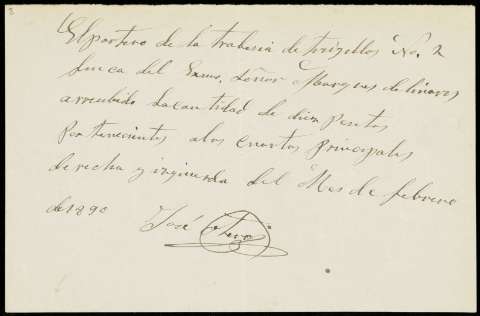 El portero de la trabesia de trigillos No. 2
finca del Exmo. señor Marques de linares
a recibido la cantidad de diez pesetas
pertenecientes a los cuartos principales
derecha y izquierda del Mes de febrero
de 1890 José